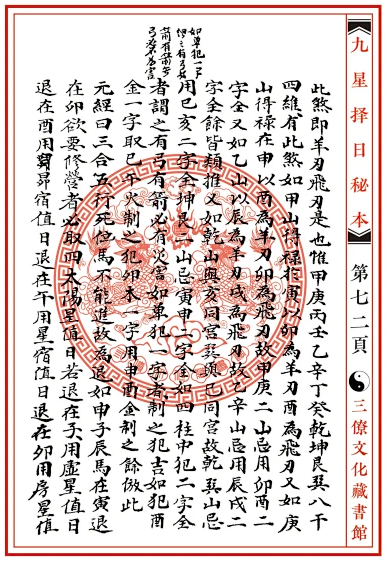 九星择日秘本 第七二頁 三僚文化藏書館
此煞即羊刃飛刃是也惟甲庚丙壬乙辛丁癸乾坤艮巽八干
四維有此煞如甲山得祿於寅以卯為羊刃酉為飛刃又如庚
山得祿在申以酉為羊刃卯為飛刃故甲庚二山忌用卯酉二
字全又如乙山以辰為羊刃戌為飛刃故乙辛山忌用辰戌二
字全餘皆類推又如乾山與亥同宮巽與巳同宮故乾巽山忌
用巳亥二字全坤艮二山忌寅申二字全如四柱中犯二字全
者謂之有弓有箭必有災害如单犯一字者制之犯吉如犯酉
金一字取巳午火制之犯卯木一字用申酉金制之餘倣此
元經曰三合五行死位馬不能進故為退如申子辰馬在寅退
在卯欲要修營者必取四太陽星值日若退在子用虛星值日
退在酉用昴宿值日退在午用星宿值日退在卯用房星值
如单犯一
箭有箭